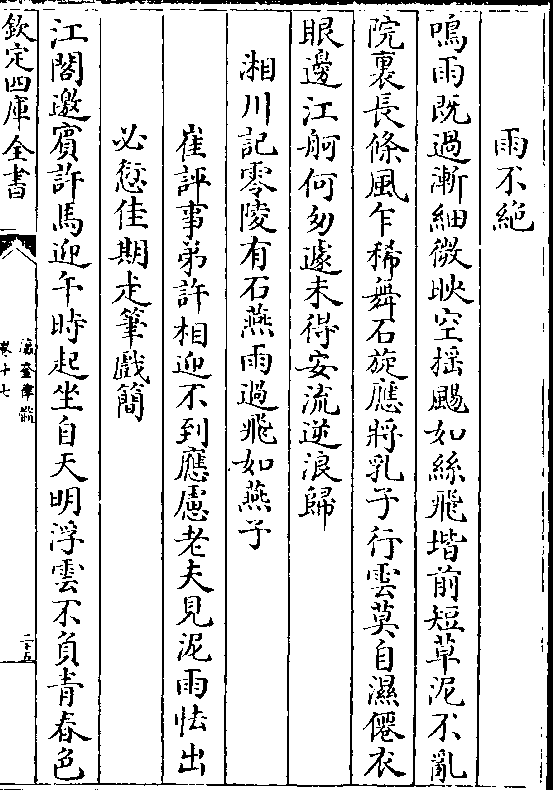 雨不絶
鳴雨既過漸細微映空揺颺如絲飛堦前短草泥不亂
院裏長條風乍稀舞石旋應將乳子行雲莫自濕僊衣
眼邊江舸何匆遽未得安流逆浪歸
湘川記零陵有石燕雨過飛如燕子
崔評事弟許相迎不到應慮老夫見泥雨怯出
必愆佳期走筆戲簡
江閣邀賓許馬迎午時起坐自天明浮雲不負青春色
欽定四庫全書
瀛奎律髓
卷十七
二十五